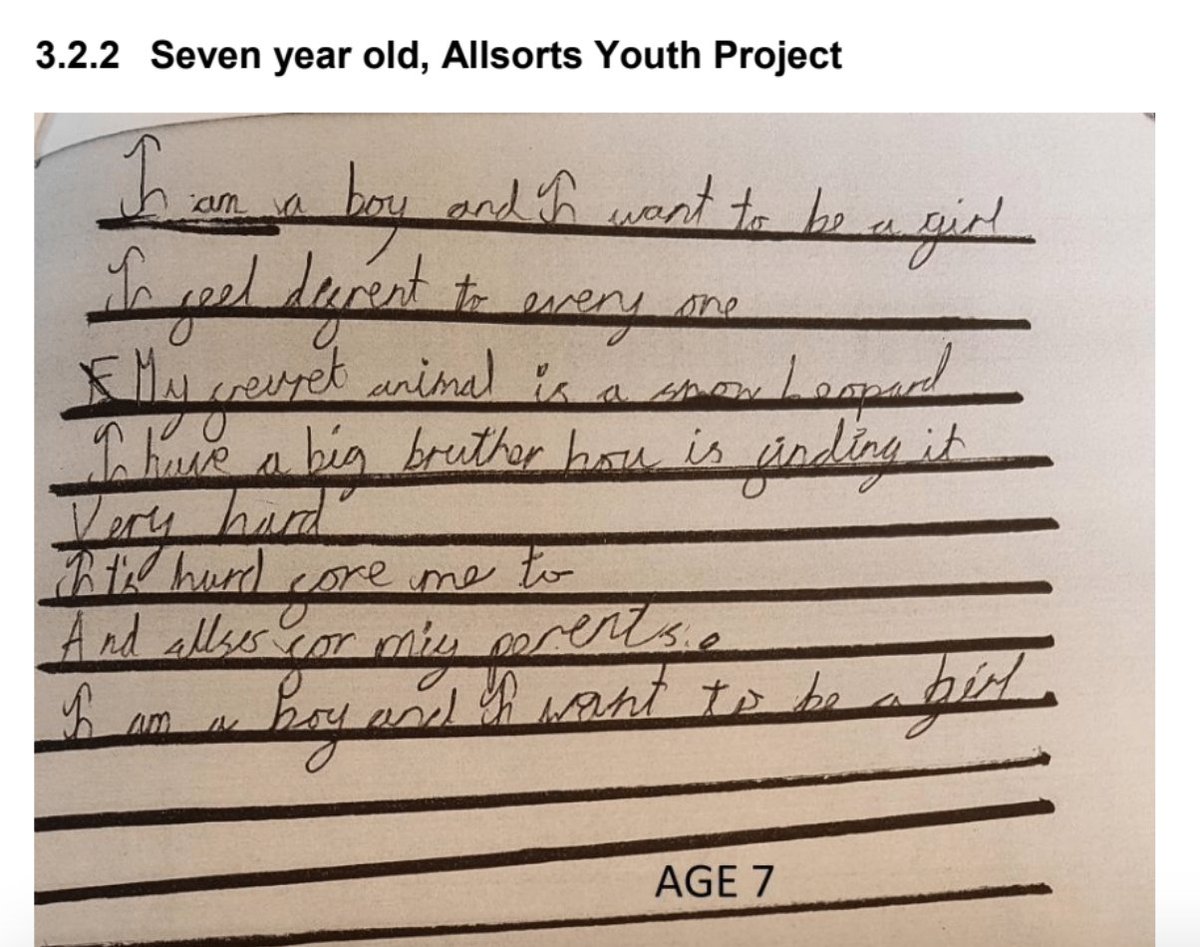 3.2.2 Seven year old, Allsorts Youth Project
I am a boy and I want to be a girl
I feel difrent to every one
My animal is a snow Leopard
I have a big bruther hou is finding it
Very hard
It's hard fore me to
And allses for miy perents.
I am a boy and I want to be a girl.
AGE 7